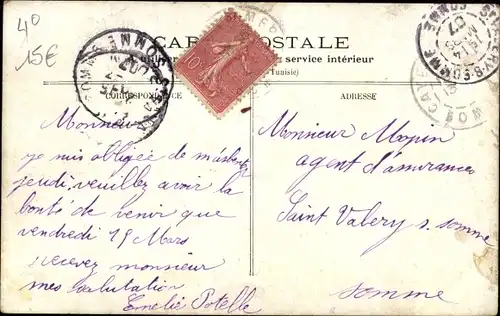 4⁰
15€
CARTE POSTALE
service intérieur
Tunisie)
CORRESPONDANCE
ADRESSE
Monsieur
je suis obligée de m'absent
jeudi, veuillez avoir la
bonté de venir que
vendredi 15 Mars
recevez monsieur
mes salutation
Emelie Potelle
Monsieur Mopin
agent d'assurances
Saint Valery s. somme
somme
10
SOMME